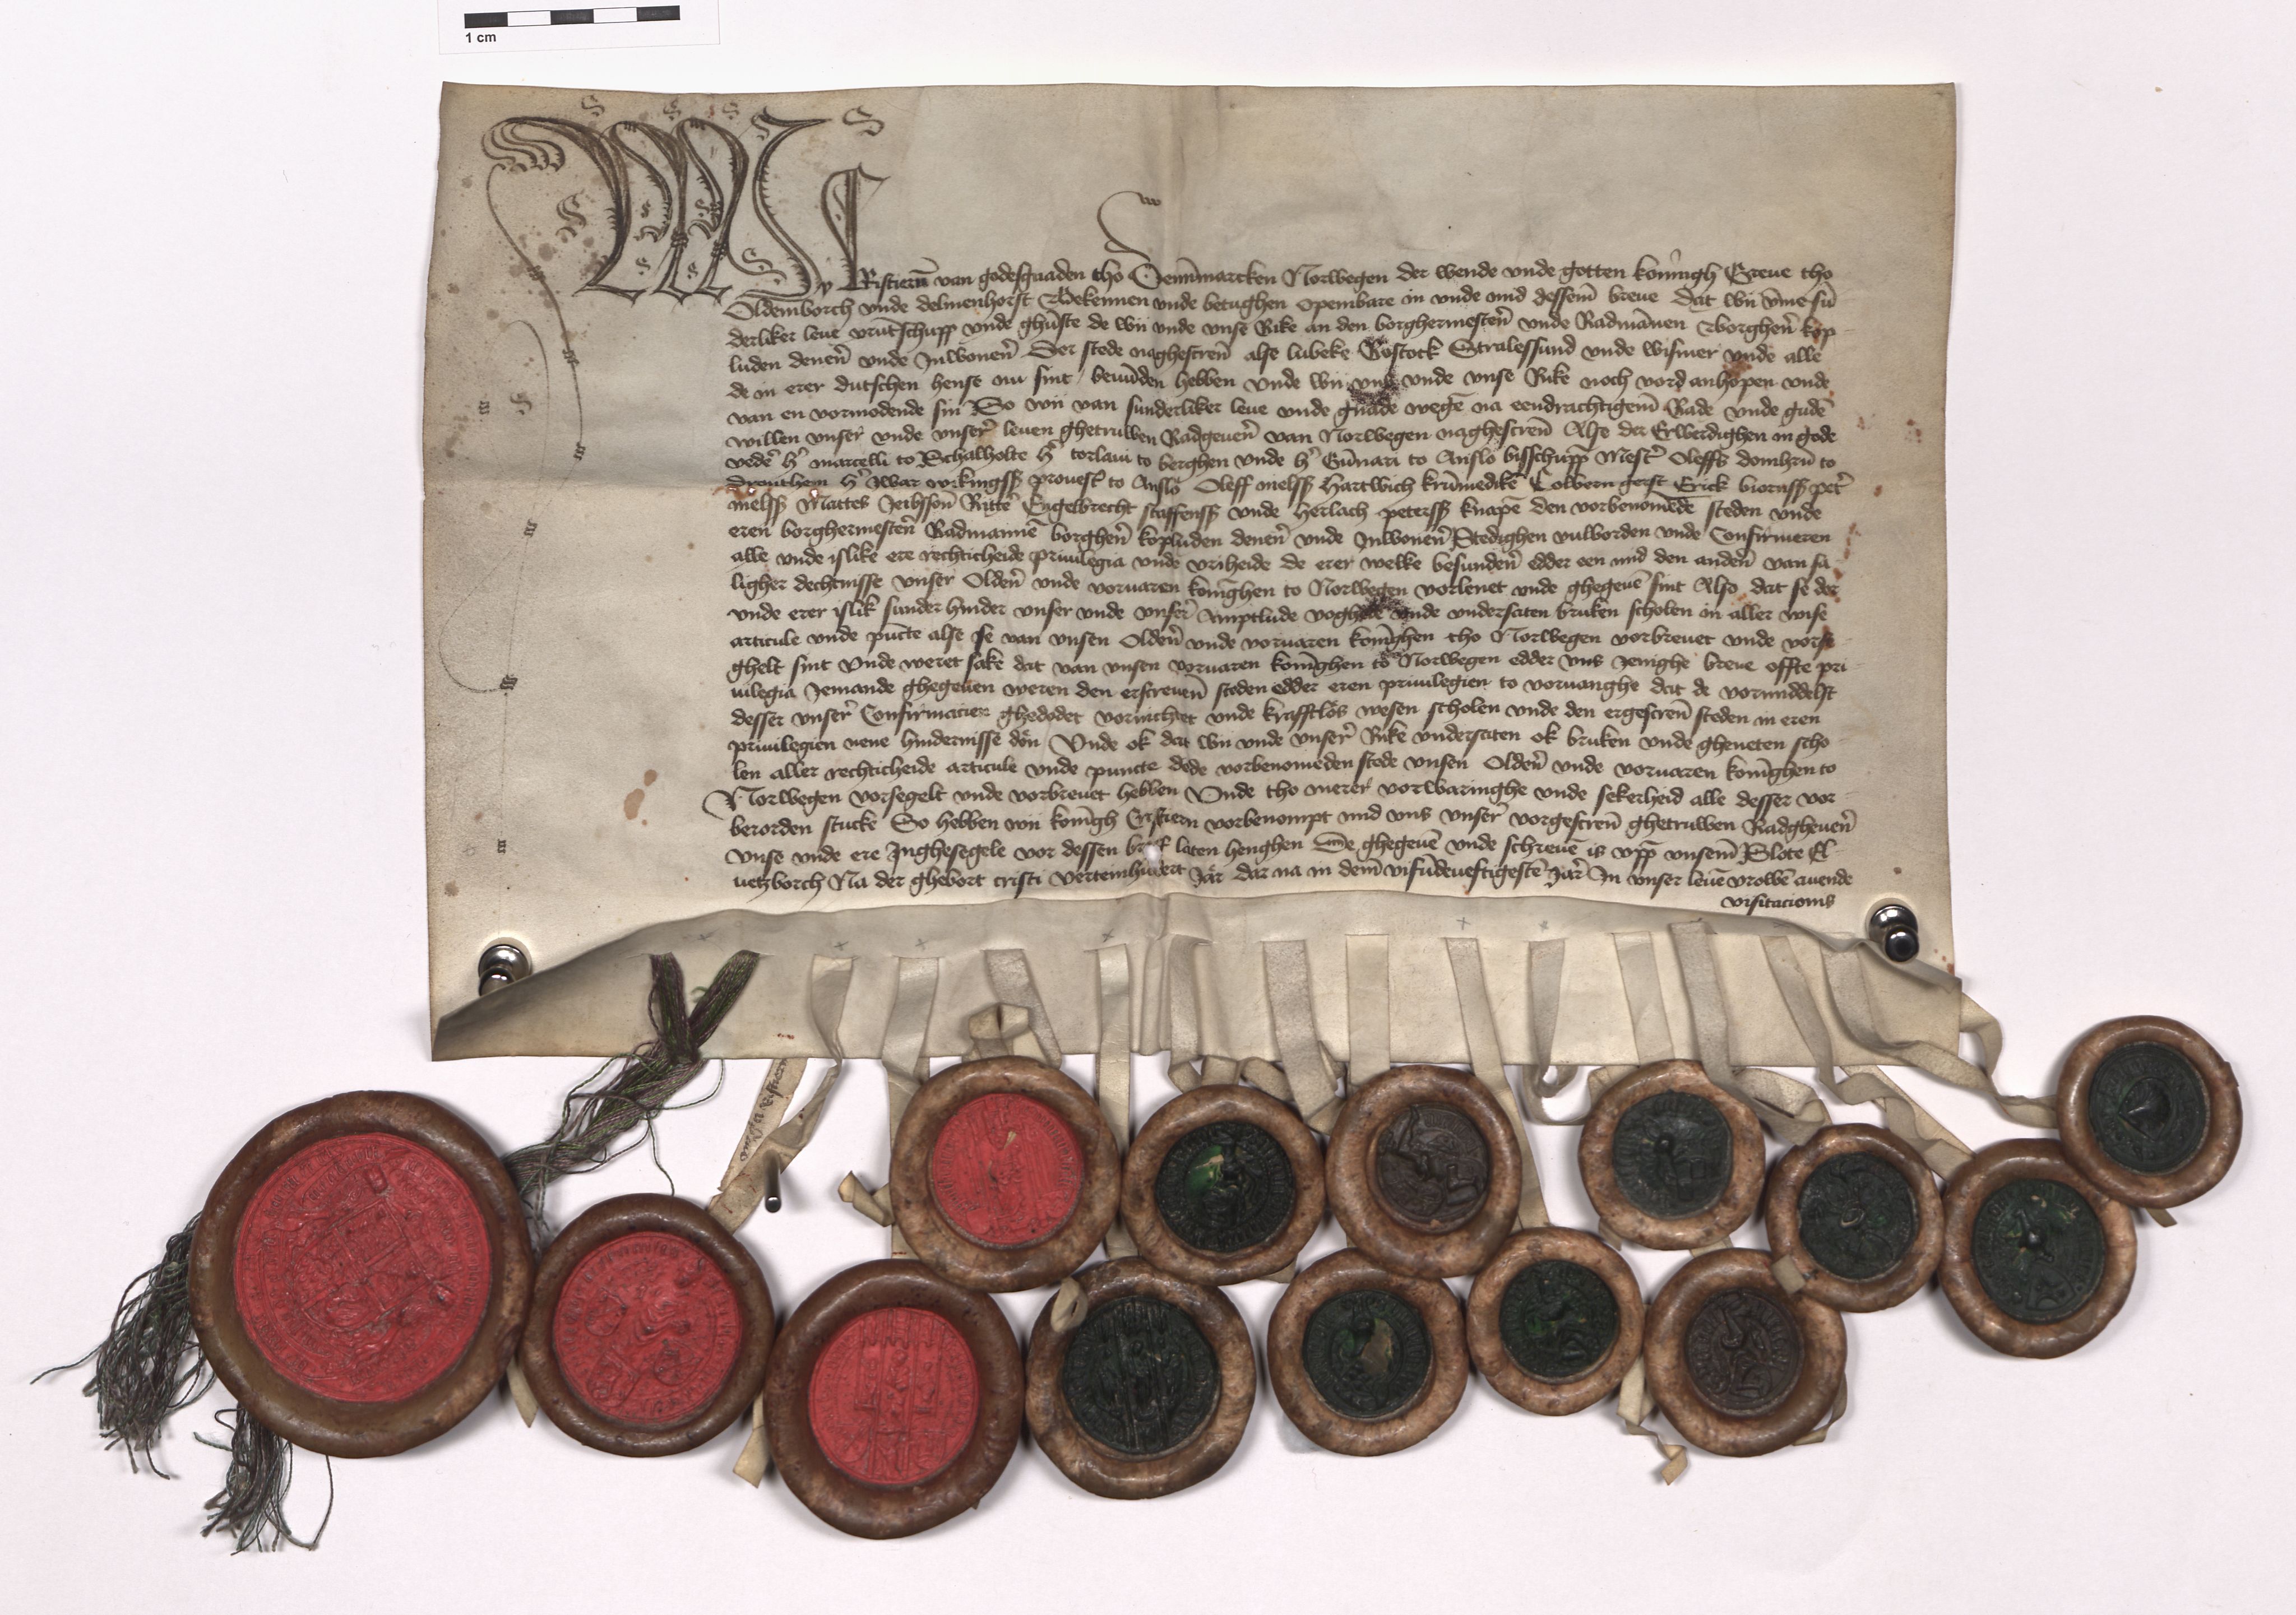 1 cm
Wy Kristiern̄ van godesgnaden tho Denn̄marcken Norwegen der wende vnde gotten konn̄igh Greue tho
Oldemborch vnde delmenhorst Bekennen vnde betughen openbare in vnde mid dessem̄ breue dat wii vm̄e sū
derliker leue vrūtschupp vnde ghūste de wii vnde vnse Rike an den borghermesten̄ vnde Radmānen borghen̄ kop
luden denen̄ vnde Inwonen̄ Der stede naghescren̄ alse lubeke Rostock Stralessund vnde wismer vnde alle
de in erer dutschen hense nu sint beuūden hebben vnde wii vns vnde vnse Rike noch vord anhopen vnde
van en vormodende sin So wii van sunderliker leue vnde gnade wegē na eendrachtigem̄ Rade vnde gudē
willen vnser vnde vnser leuen ghetruwen Radgeuen̄ van Norwegen naghescren̄ Alse der Erwerdighen in gode
vedē h' marcelli to Schalholte h' torlaui to berghen vnde h' Gūnari to Anslo bisschupp Mest' Oleffs domhrn̄ to
dronthem h' Iwar vikingss prouest to Anslo Oleff nielss Hartwich krūmedikē Colbern gerst Erick biornss pet'
nielss Mattes Jeibssen̄ Ritte' Engelbrecht staffenss vnde Herlach peterss knapē den vorbenomēde steden vnde
eren borghermesten̄ Radmannē borghen̄ kopluden denen̄ vnde Inwonen̄ Stedighen vulborden vnde Confirmeren
alle vnde islike ere rechticheide priuilegia vnde vriheide de erer welke besunden̄ edder een mid den anden̄ van sa
ligher dechtnisse vnser Olden̄ vnde voruaren konīghen to Norwegen vorlenet vnde ghegeuē sint Also dat se der
vnde erer islik sunder hinder vnser vnde vnser Amptlude voghede vnde vndersaten bruken scholen in aller wise
articule vnde pūcte alse se van vnsen Olden̄ vnde voruaren konīghen tho Norwegen vorbreuet vnde vorse
ghelt sint Vnde weret sake dat van vnsen voruaren konīghen to Norwegen edder vns Jenighe breue offte pri
uilegia Jemande ghegeuen weren den erscreuen̄ steden edder eren priuilegien to voruanghe dat de vormiddelst
desser vnser Confirmacien ghedodet vornichtet vnde krafftlos wesen scholen vnde den ergescren̄ steden in eren
priuilegien nene hindernisse don Vnde ok dat wii vnde vnser Rike vndersaten ok bruken vnde gheneten scho
len aller rechticheide articule vnde puncte dede vorbenomeden stede vnsen Olden̄ vnde voruaren konīghen to
Norwegen vorsegelt vnde vorbreuet hebben Vnde tho merer vorwaringhe vnde sekerheid alle desser vor
berorden stucke So hebben wii konīgh Cristiern vorbenompt mid vns vnser vorgescren̄ ghetruwen Radgheuen̄
vnse vnde ere Inghesegele vor dessen breff laten henghen De ghegeuē vnde schreuē is vpp vnsem̄ Slote El
uetzborch Na der ghebort cristi verteinhūdert Jar dar na in dem̄ vifūdeueftigestē Jar In vnser leuē vrowē auende
visitacionis